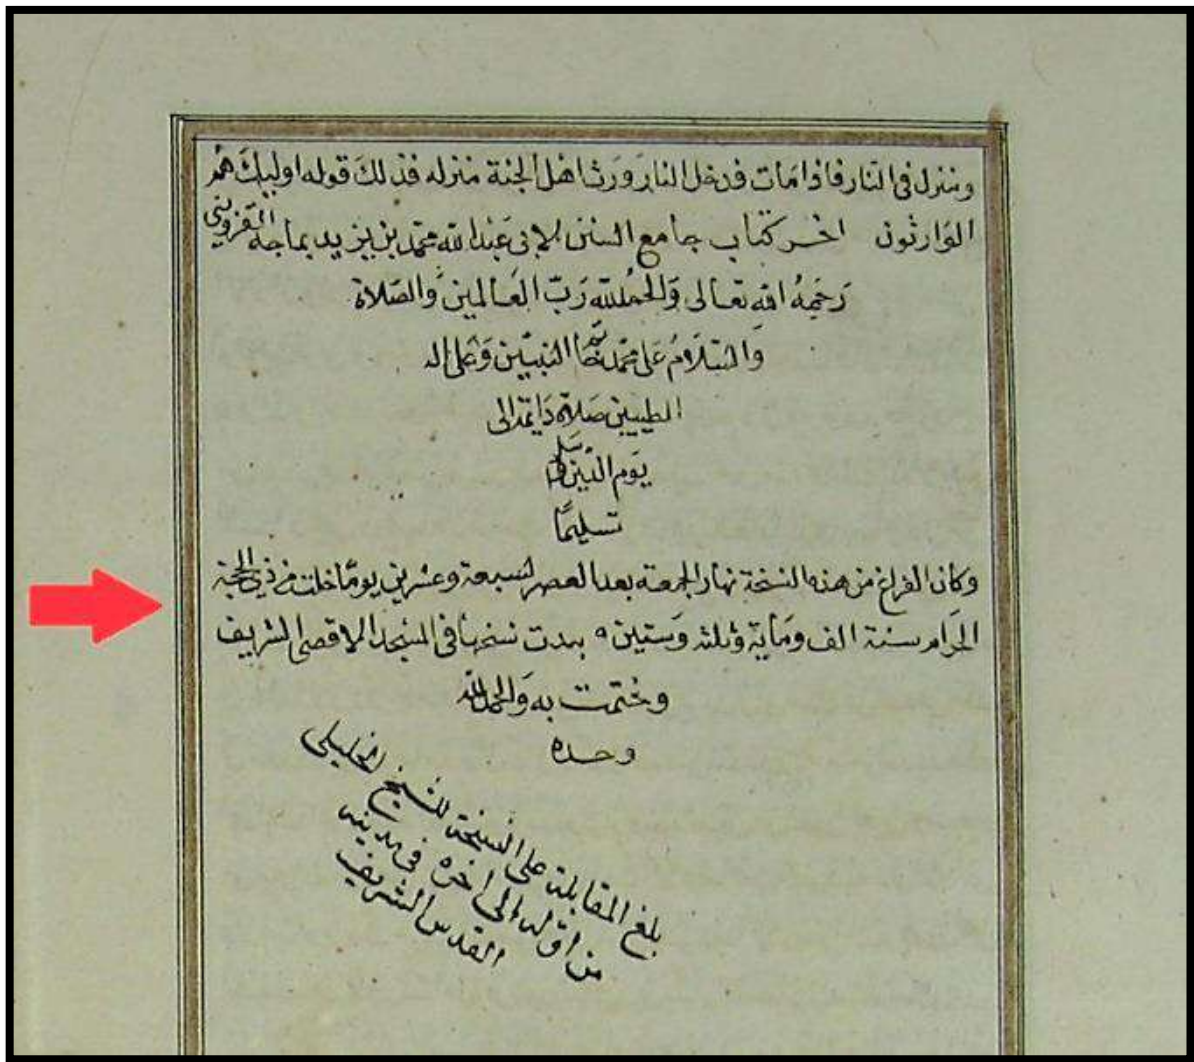 ومنزل في النار فاذا مَات فدخل النارَ وَرثَ اهل الجنة منزله فذلكَ قوله اوليكَ هُمُ
الوَارثون اخر كتاب جامع السنن لابي عَبْد الله محمّد بن يزيد بماجة القزويني
رَحِمهُ الله تعالى وَالحمْدُ لله رَبّ العَالمينَ وَالصّلاة
وَالسّلَامُ عَلى محمّد خاتم النبيّين وَعَلى اله
الطيبين صَلاة دَايمَة الى
يَوم الدّين وسلم
تسليمًا
وكان الفراغ من هذه النسخة نهار الجمعة بعد العصر لسبعة وعشرين يومًا خلت من ذي الحجة
الحرَام سنة الف ومَاية وثلثة وَستين ٥ بدت نسخها في المسْجد الاقصى الشريف
وختمت به وَالحمد لله
وحده
بلغ المقابلة على النسخة للشيخ الخليلي
من اوّله الى اخره في مدينة
القدس الشريف